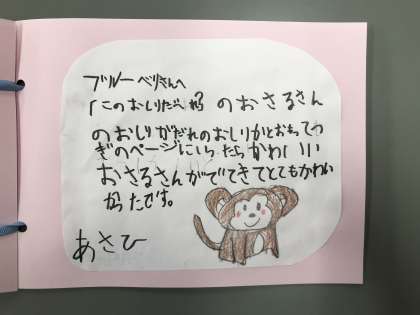 ブルーベリさんへ
「このおしりだあれ」のおさるさん
のおしりがだれのおしりかとおもってつ
ぎのページにいったらかわいい
おさるさんがでてきてとてもかわい
かったです。
あさひ